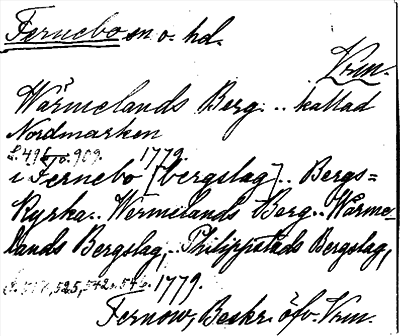 Fernebo sn o. hd.
Vrm.
Wärmelands Berg .. kallad
Nordmarken
S. 495 o. 909. 1779.
i Fernebo [bergslag] .. Bergs=
Kyrka .. Wermelands Berg .. Wärme-
lands Bergslag, .. Philippstads Bergslag,
525, 542 1779.
Fernow, Beskr. öfv. Vrm.